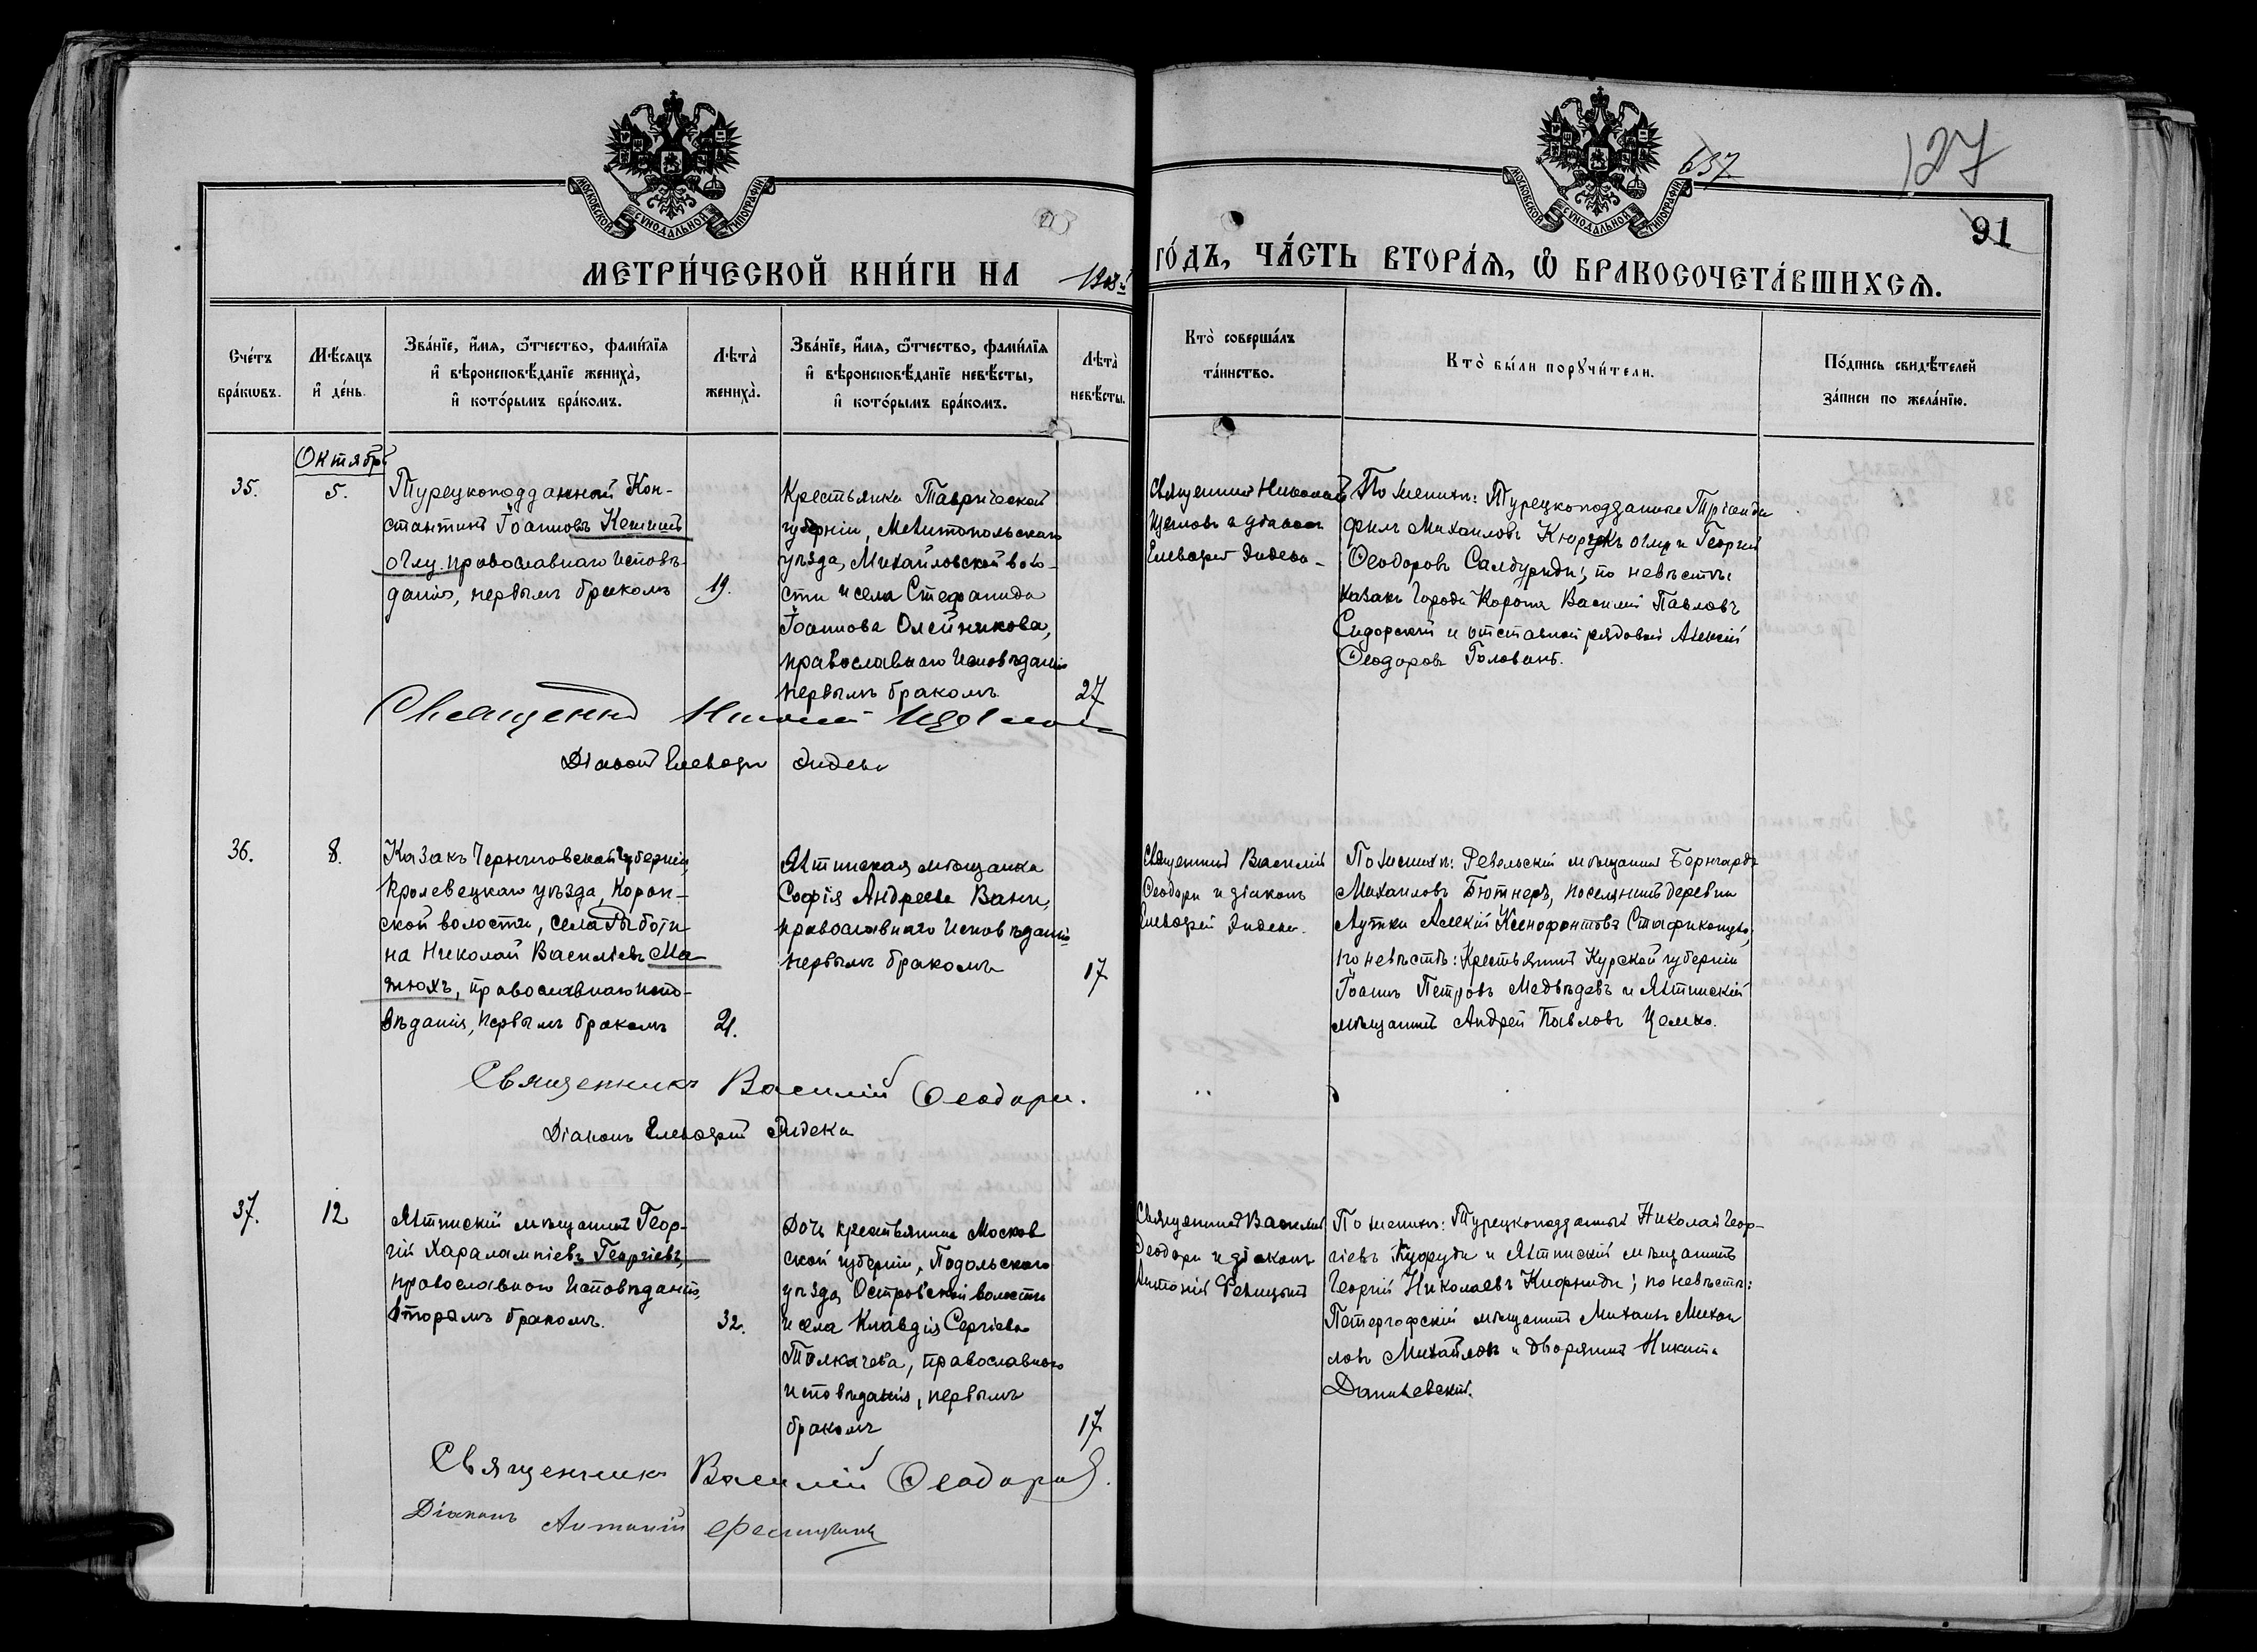 МОСКОВСКОЙ СѴНОДАЛЬНОЙ ТИПОГРАФІИ
МОСКОВСКОЙ СѴНОДАЛЬНОЙ ТИПОГРАФІИ
637
127
91
МЕТРИ́ЧЕСКОЙ КНИ́ГИ НА 1908й
ГО́ДЪ, ЧА́СТЬ ВТОРА́Ѧ, Ѽ БРАКОСОЧЕТА́ВШИХСѦ.
Сче́тъ бра́кωвъ.
Мѣ́сяцъ и҆ де́нь.
Зва́нїе, и҆́мя, ѻ҆́тчество, фами́лїя и҆ вѣроисповѣ́данїе жениха̀, и҆ кото́рымъ бра́комъ.
Лѣта̀ жениха̀.
Зва́нїе, и҆́мя, ѻ҆́тчество, фами́лїя и҆ вѣроисповѣ́данїе невѣ́сты, и҆ кото́рымъ бра́комъ.
Лѣта̀ невѣ́сты.
Кто̀ соверша́лъ та́инство.
Кто̀ бы́ли порꙋчи́тели.
По́дпись свидѣ́телей за́писи по жела́нїю.
Октябрь
35.
5.
Турецкоподданный Кон-
стантинъ Іоанновъ Кешишъ
оглу, православнаго исповѣ-
данія, первымъ бракомъ
19.
Крестьянка Таврической
губерніи, Мелитопольскаго
уѣзда, Михайловской воло-
сти и села Стефанида
Іоаннова Олейникова,
православнаго исповѣданія
первымъ бракомъ
27
Священникъ Николай
Щегловъ и діаконъ
Елевферій Эидека
По женихѣ: Турецкоподданные Тріанда
филъ Михаиловъ Кюрукъ оглу и Георгій
Ѳеодоровъ Салдуриди; по невѣстѣ:
казакъ города Коропа Василій Павловъ
Сидорскій и отставной рядовой Алексій
Ѳеодоровъ Голованъ.
Священникъ Николай Щегловъ
Діаконъ Елевферій Эидека
36.
8.
Казакъ Черниговской губерніи,
Кролевецкаго уѣзда, Короп-
ской волости, села Рыботи-
на Николай Василіевъ Ма-
нюхъ, православнаго испо-
вѣданія, первымъ бракомъ
21.
Ялтинская мѣщанка
Софія Андреева Вани,
православнаго исповѣданія
первымъ бракомъ
17
Священникъ Василій
Ѳеодори и діаконъ
Елевферій Эидека.
По женихѣ: Ревельскій мѣщанинъ Бернгардъ
Михаиловъ Бютнеръ, поселянинъ деревни
Аутки Алексій Ксенофонтовъ
по невѣстѣ: Крестьянинъ Курской губерніи
Іоаннъ Петровъ Медвѣдевъ и Ялтинскій
мѣщанинъ Андрей Павловъ Цемко.
Священникъ Василій Ѳеодори.
Діаконъ Елевферій Эидека
37.
12
Ялтинскій мѣщанинъ Геор-
гій Харалампіевъ Георгіевъ,
православнаго исповѣданія,
вторымъ бракомъ.
32.
Дочь крестьянина Москов
ской губерніи, Подольскаго
уѣзда Островской волости
и села Клавдія Сергіева
Толкачева, православнаго
исповѣданія, первымъ
бракомъ
17
Священникъ Василій
Ѳеодори и діаконъ
Антоній
По женихѣ: Турецкоподданный Николай Геор-
гіевъ и Ялтинскій мѣщанинъ
Георгій Николаевъ Кифниди; по невѣстѣ:
Петергофскій мѣщанинъ Михаилъ Михаи
ловъ Михайловъ и дворянинъ Никита
Данилевскій.
Священникъ Василій Ѳеодори.
Діаконъ Антоній